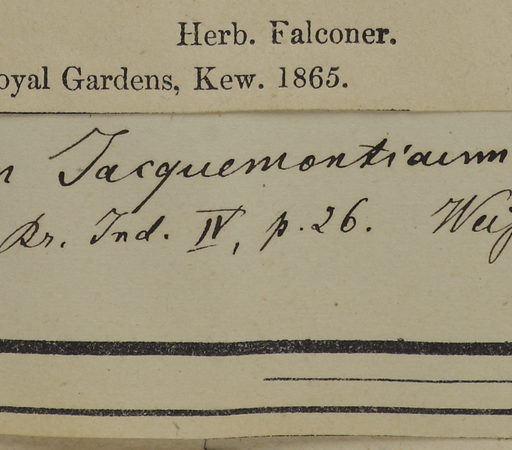 Herb. Falconer.
oyal Gardens, Kew. 1865.
n Jacquemontianum
Br. Ind. IV, p. 26. Wei